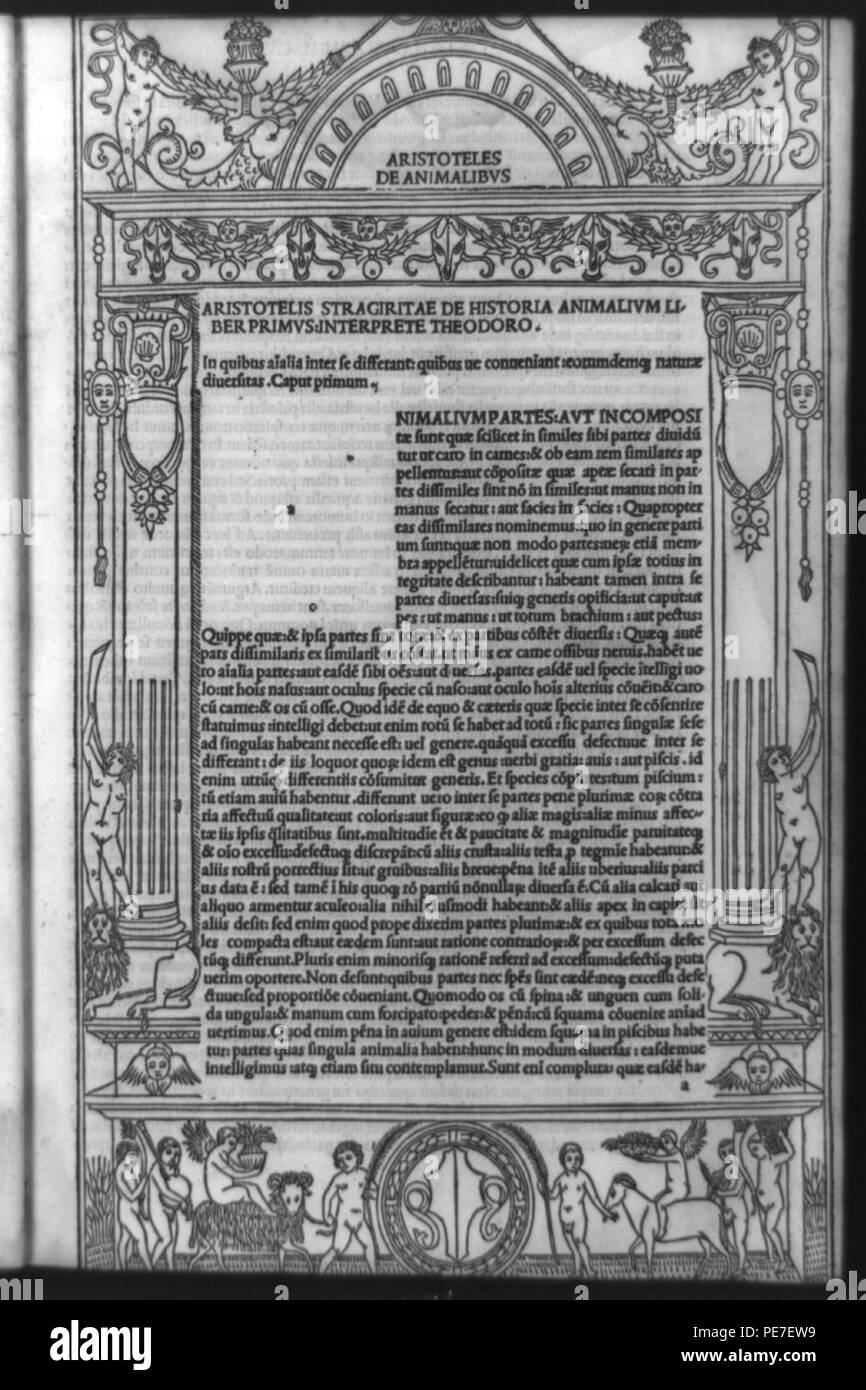 ARISTOTELES
DE ANIMALIBVS
ARISTOTELIS STRAGIRITAE DE HISTORIA ANIMALIVM LI-
BER PRIMVS:INTERPRETE THEODORO.
In quibus aialia inter se differant: quibus ue conueniant :eorumdemq; naturæ
diuersitas .Caput primum
NIMALIVM PARTES:AVT INCOMPOSI
tæ sunt quæ scilicet in similes sibi partes diuidū
tur ut caro in carnes:& ob eam rem similares ap
pellentur:aut cōpositæ quæ aptæ secari in par-
tes dissimiles sint nō in similes:ut manus non in
manus secatur: aut facies in facies: Quapropter
eas dissimilares nominemus.quo in genere parti
um sunt:quæ non modo partes:neq; etiā mem-
bra appellētur:uidelicet quæ cum ipsæ totius in
tegritate describantur: habeant tamen intra se
partes diuersas:suiq; generis opificia:ut caput:ut
pes: ut manus: ut totum brachium: aut pectus:
Quippe quæ:& ipsa partes & ex partibus cōstēt diuersis: Quæq; autē
pars dissimilaris ex similaribus ut manus ex carne ossibus neruis.habēt ue
ro aialia partes:aut easdē sibi oēs:aut diuersas.partes easdē uel specie ītelligi uo
lo:ut hois nasus:aut oculus specie cū naso:aut oculo hois alterius cōueīt:& caro
cū carne:& os cū osse.Quod idē de equo & cæteris quæ specie inter se cōsentire
statuimus :intelligi debet:ut enim totū se habet ad totū: sic partes singulæ sese
ad singulas habeant necesse est: uel genere.quāquā excessu defectuue inter se
differant: de iis loquor quoq; idem est genus :uerbi gratia: auis: aut piscis. id
enim utrūq; differentiis cōsumitur generis. Et species piscium:
tū etiam auiū habentur .differunt uero inter se partes pene plurimæ cōtra
ria affectuū qualitate:ut coloris:aut figuræ: aliæ magis:aliæ minus affec-
tæ iis ipsis qualitatibus sint.multitudīe & paucitate & magnitudīe paruitateq;
& oīo excessu:defectuq; discrepāt:cū aliis crusta:aliis testa tegmīe habeatur:&
aliis rostrū porrectius sit:ut gruibus:aliis breue:pēna itē aliis uberius:aliis parci
us data ē: sed tamē ī his quoq; partiū nōnullæ diuersa ē.Cū alia calcari aut
aliquo armentur aculeo:alia nihil eiusmodi habeant:& aliis apex in capite
aliis desit: sed enim quod prope dixerim partes plurimæ:& ex quibus tota
les compacta est:aut eædem sunt:aut ratione & per excessum defec
tūq; differunt.Pluris enim minorisq; rationē referri ad excessum:defectūq; puta
uerim oportere.Non desunt:quibus partes nec spēs sint eædē:neq; excessu defe
ctuue:sed proportiōe cōueniant.Quomodo os cū spina:& unguen cum soli-
da ungula:& manum cum forcipato:pedes:& pēnā:cū squama cōuenire aniad
uertimus.Quod enim pēna in auium genere est:idem squama in piscibus habe
tur: partes quas singula animalia habent:hunc in modum diuersas: easdemue
intelligimus :atq; etiam situ contemplamur.Sunt enī complura: quæ easdē ha-
a
alamy
Image ID: PE7EW9
www.alamy.com